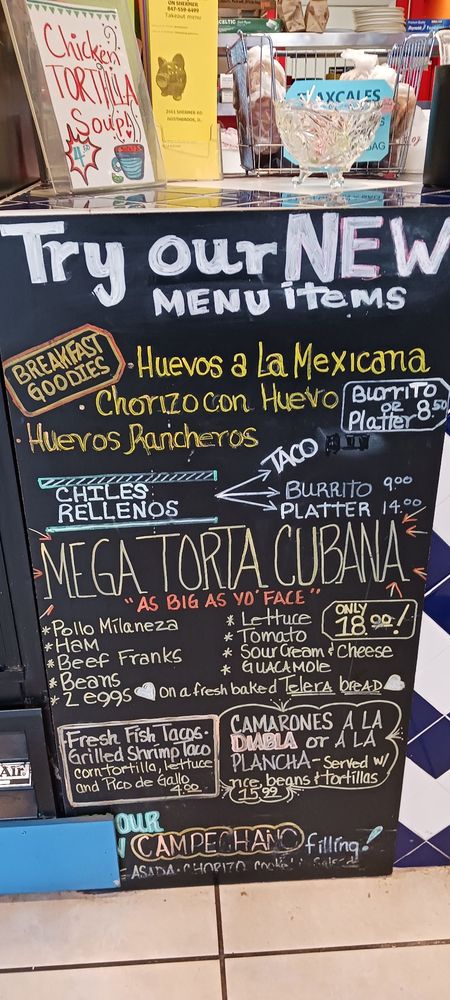 Chicken
TORTILLA
Soup!
ON SHERMER
847-559-6499
Takeout menu
2461 SHERMER RD
NORTHBROOK, IL
BAG
Try our NEW
MENU items
BREAKFAST
GOODIES
· Huevos a La Mexicana
· Chorizo con Huevo
BURRITO
OR
Platter 8.50
· Huevos Rancheros
TACO
CHILES
RELLENOS
BURRITO 9.00
PLATTER 14.00
MEGA TORTA CUBANA
"AS BIG AS YO' FACE"
ONLY
18.00!
* Pollo Milaneza
* HAM
* Beef Franks
* Beans
* 2 eggs
* Lettuce
* Tomato
* Sour Cream & Cheese
* GUACAMOLE
On a fresh baked Telera bread
· Fresh Fish Tacos ·
Grilled Shrimp Taco
corn tortilla, lettuce
and Pico de Gallo
4.90
CAMARONES A LA
DIABLA or A LA
PLANCHA - Served w/
rice, beans & tortillas
15.99
OUR
CAMPECHANO filling!
ASADA · CHORIZO